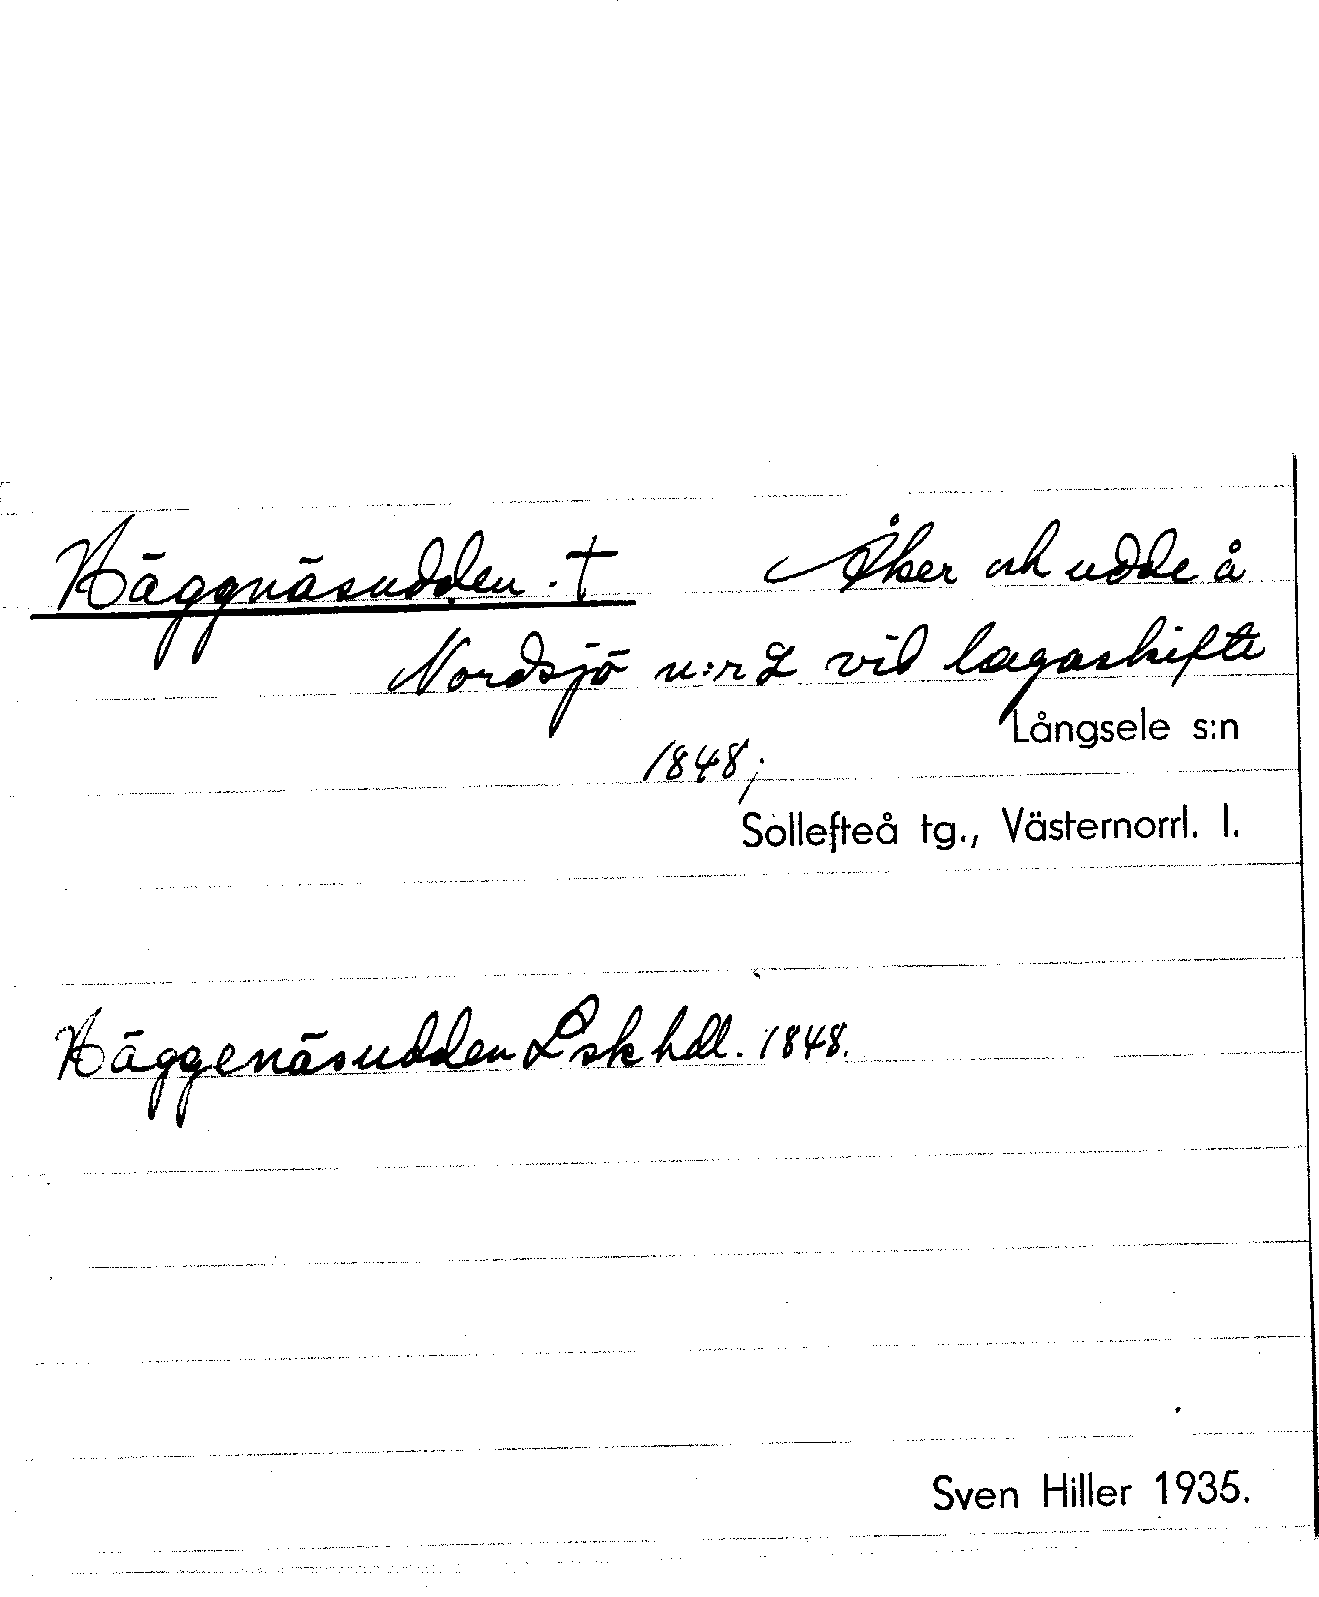 Häggnäsudden. †
Åker och udde å
Nordsjö n:r 2 vid lagaskifte
Långsele s:n
1848;
Sollefteå tg., Västernorrl. l.
Häggenäsudden Lsk hdl. 1848.
Sven Hiller 1935.